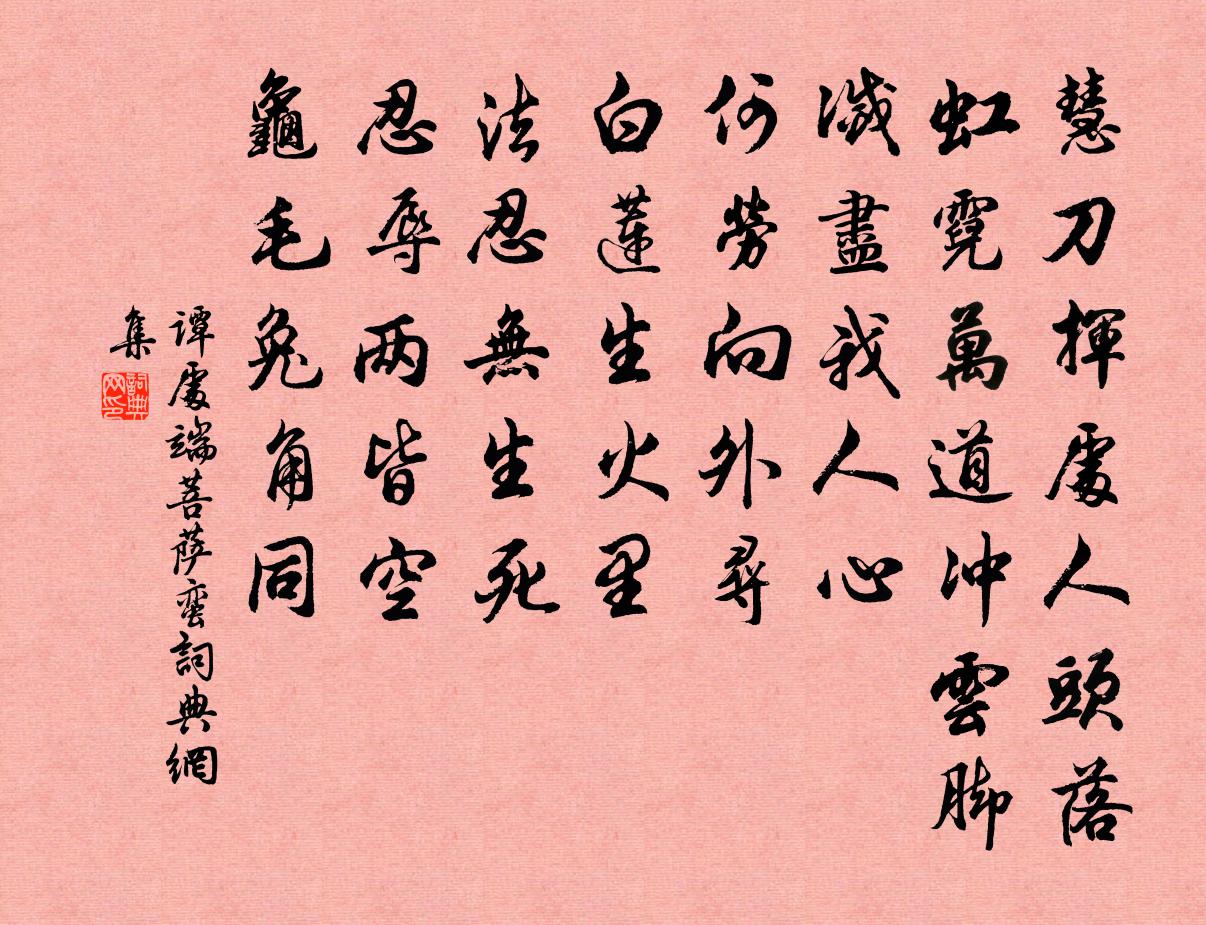 慧刀揮處人頭落
虹霓萬道冲雲脚
滅盡我人心
何勞向外尋
白蓮生火里
法忍無生死
忍辱两皆空
龜毛兔角同
谭處端菩萨蛮詞典網
集
詞典網印